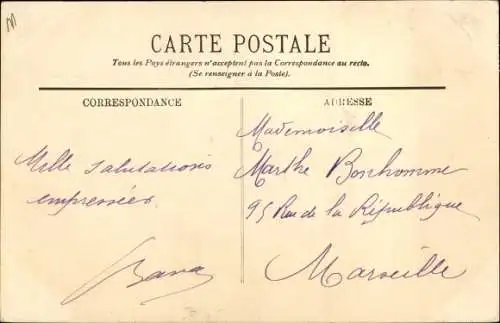 CARTE POSTALE
Tous les Pays étrangers n'acceptent pas la Correspondance au recto.
(Se renseigner à la Poste).
CORRESPONDANCE
Mille salutations
empressées
ADRESSE
Mademoiselle
Marthe Bonhomme
95 Rue de la République
Marseille